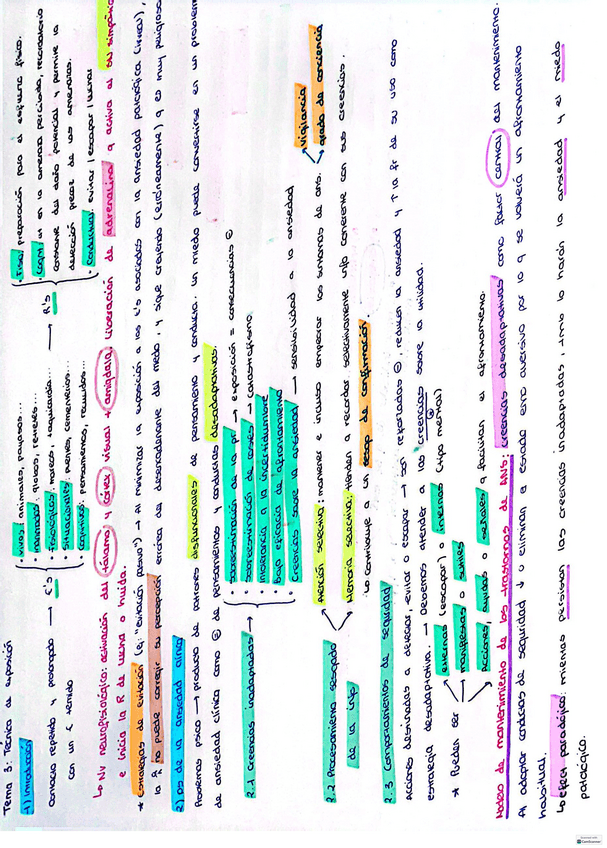 Tema 3: Técnica de exposición
1) Introducción
Contacto repetido y prolongado → E's
con un E temido
· vivos: animales, payasos...
· inanimados: globos, reveses...
· fisiológicos: mareo, taquicardia...
· situacionales: puentes, cementerios...
· cognitivos: pensamientos, recuerdos...
→ R's
· Fisio: preparación para el esfuerzo físico.
· Cogni: en la amenaza percibida, recordatorio
constante del daño potencial y permite la
detección precoz de las amenazas.
· Conductual: evitar / escapar / luchar
↳ Nv neurofisiológico: activación del tálamo y córtex visual + amígdala. Liberación de adrenalina y activa el SN simpático
e inicia la R de lucha o huida.
* Estrategias de evitación (ej: "evitación pasiva") → Al minimizar la exposición a los E's asociados con la ansiedad patológica (irreal),
la P no puede corregir su percepción errónea de desencadenante del miedo, y sigue creyendo (erróneamente) q es muy peligroso
2) de la ansiedad clínica
Problemas psico → producto de patrones disfuncionales de pensamiento y conducta. Un miedo puede convertirse en un problema
de ansiedad clínica como de pensamientos y conductas desadaptativas.
2.1 Creencias inadaptadas →
· Sobreestimación de la pr → exposición = consecuencias ⊖
· Sobreestimación de costes → catastrofismo
· Intolerancia a la incertidumbre
· Baja eficacia de afrontamiento
· Creencias sobre la ansiedad → sensibilidad a la ansiedad
2.2 Procesamiento sesgado
de la info
Atención selectiva: mantener e incluso empeorar los síntomas de ans.
vigilancia
grado de conciencia
Memoria selectiva: tienden a recordar selectivamente info consistente con sus creencias.
↳ contribuye a un sesgo de confirmación.
2.3 Comportamientos de seguridad
Acciones destinadas a detectar, evitar o escapar → son reforzadas ⊖, reducen la ansiedad y ↑ la fr de su uso como
estrategia desadaptativa. → Debemos atender a las creencias sobre la utilidad.
* Pueden ser
externas (escapar) o internas (tipo mental)
manifiestas o sutiles
Acciones, ayudas o señales q facilitan el afrontamiento.
Modelo de mantenimiento de los trastornos de ANS: creencias desadaptativas como factor central del mantenimiento.
Al adoptar conductas de seguridad ↓ o eliminan el estado emo aversivo por lo q se volverá un afrontamiento
habitual.
↳ efect paradójico: mientras persistan las creencias inadaptadas, tmb lo harán la ansiedad y el miedo
patológico.
CamScanner